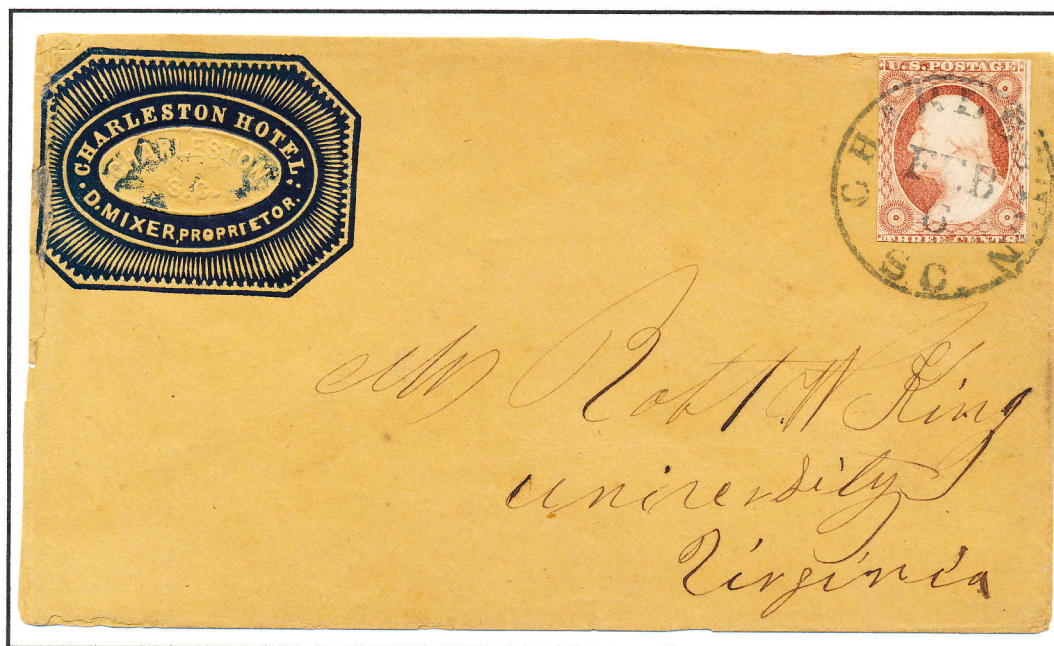 CHARLESTON HOTEL.
CHARLESTON
S.C.
D. MIXER, PROPRIETOR.
U.S. POSTAGE
THREE CENTS
CHARLESTON
FEB
6
S.C.
Mr Robt W King
University
Virginia